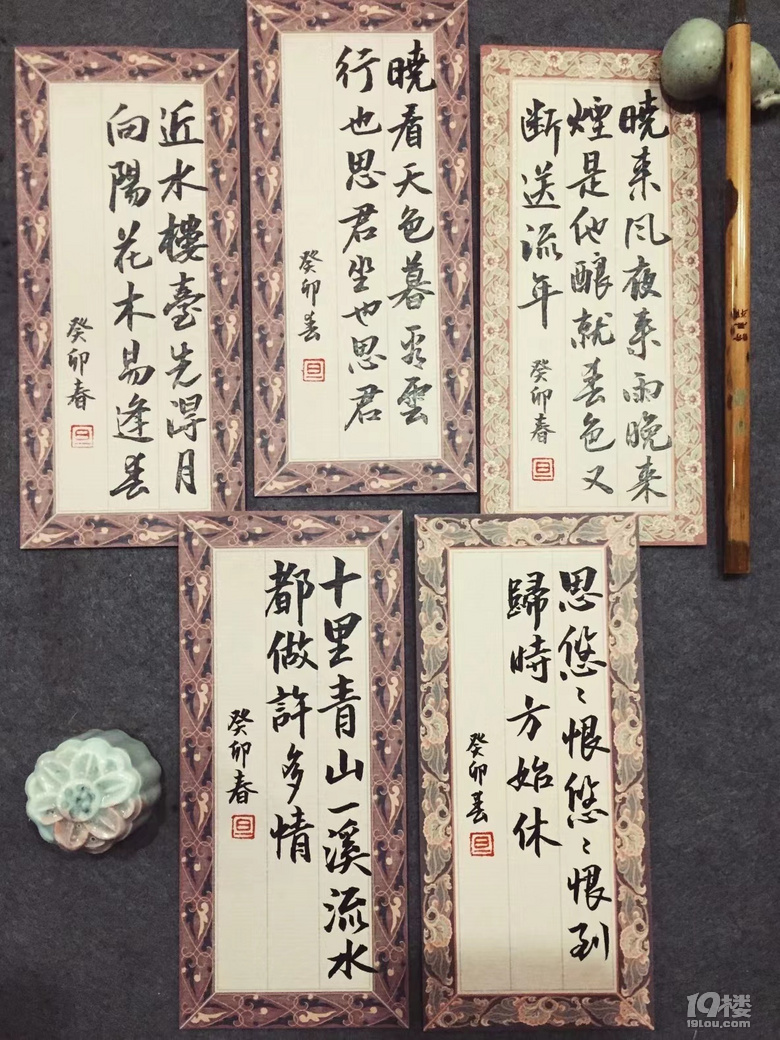 近水樓臺先得月
向陽花木易逢春
癸卯春
旦
曉看天色暮看雲
行也思君坐也思君
癸卯春
旦
曉来风夜来雨晚来
煙是他釀就春色又
断送流年
癸卯春
旦
十里青山一溪流水
都做許多情
癸卯春
旦
思悠〻恨悠〻恨到
歸時方始休
癸卯春
旦
19楼
19lou.com